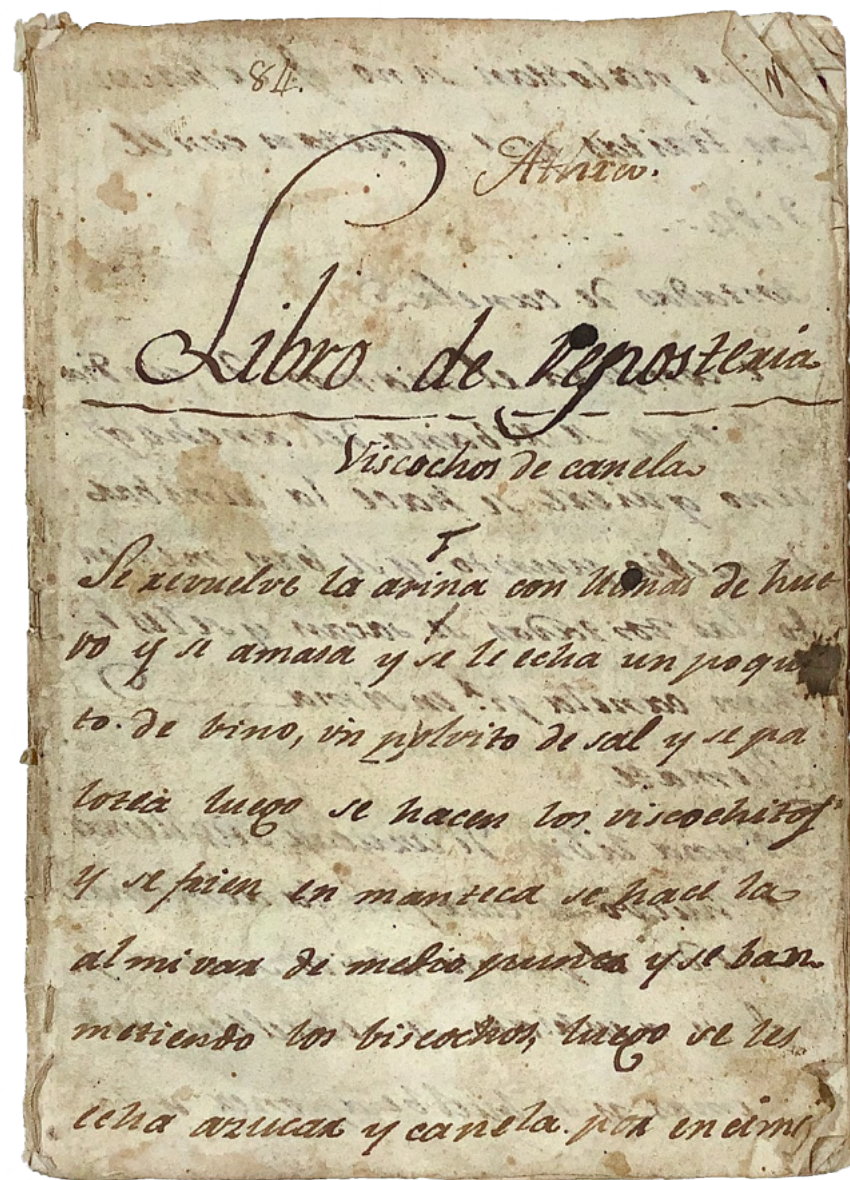 84.
Libro de Reposteria
Viscochos de canela
Se revuelve la arina con llemas de hue
vo y se amasa y se le echa un poqui
to de vino, un polvito de sal y se pa
lotea luego se hacen los viscochitos
y se frien en manteca se hace la
almivar de medio punto y se ban
metiendo los biscochos, luego se les
echa azucar y canela por encima